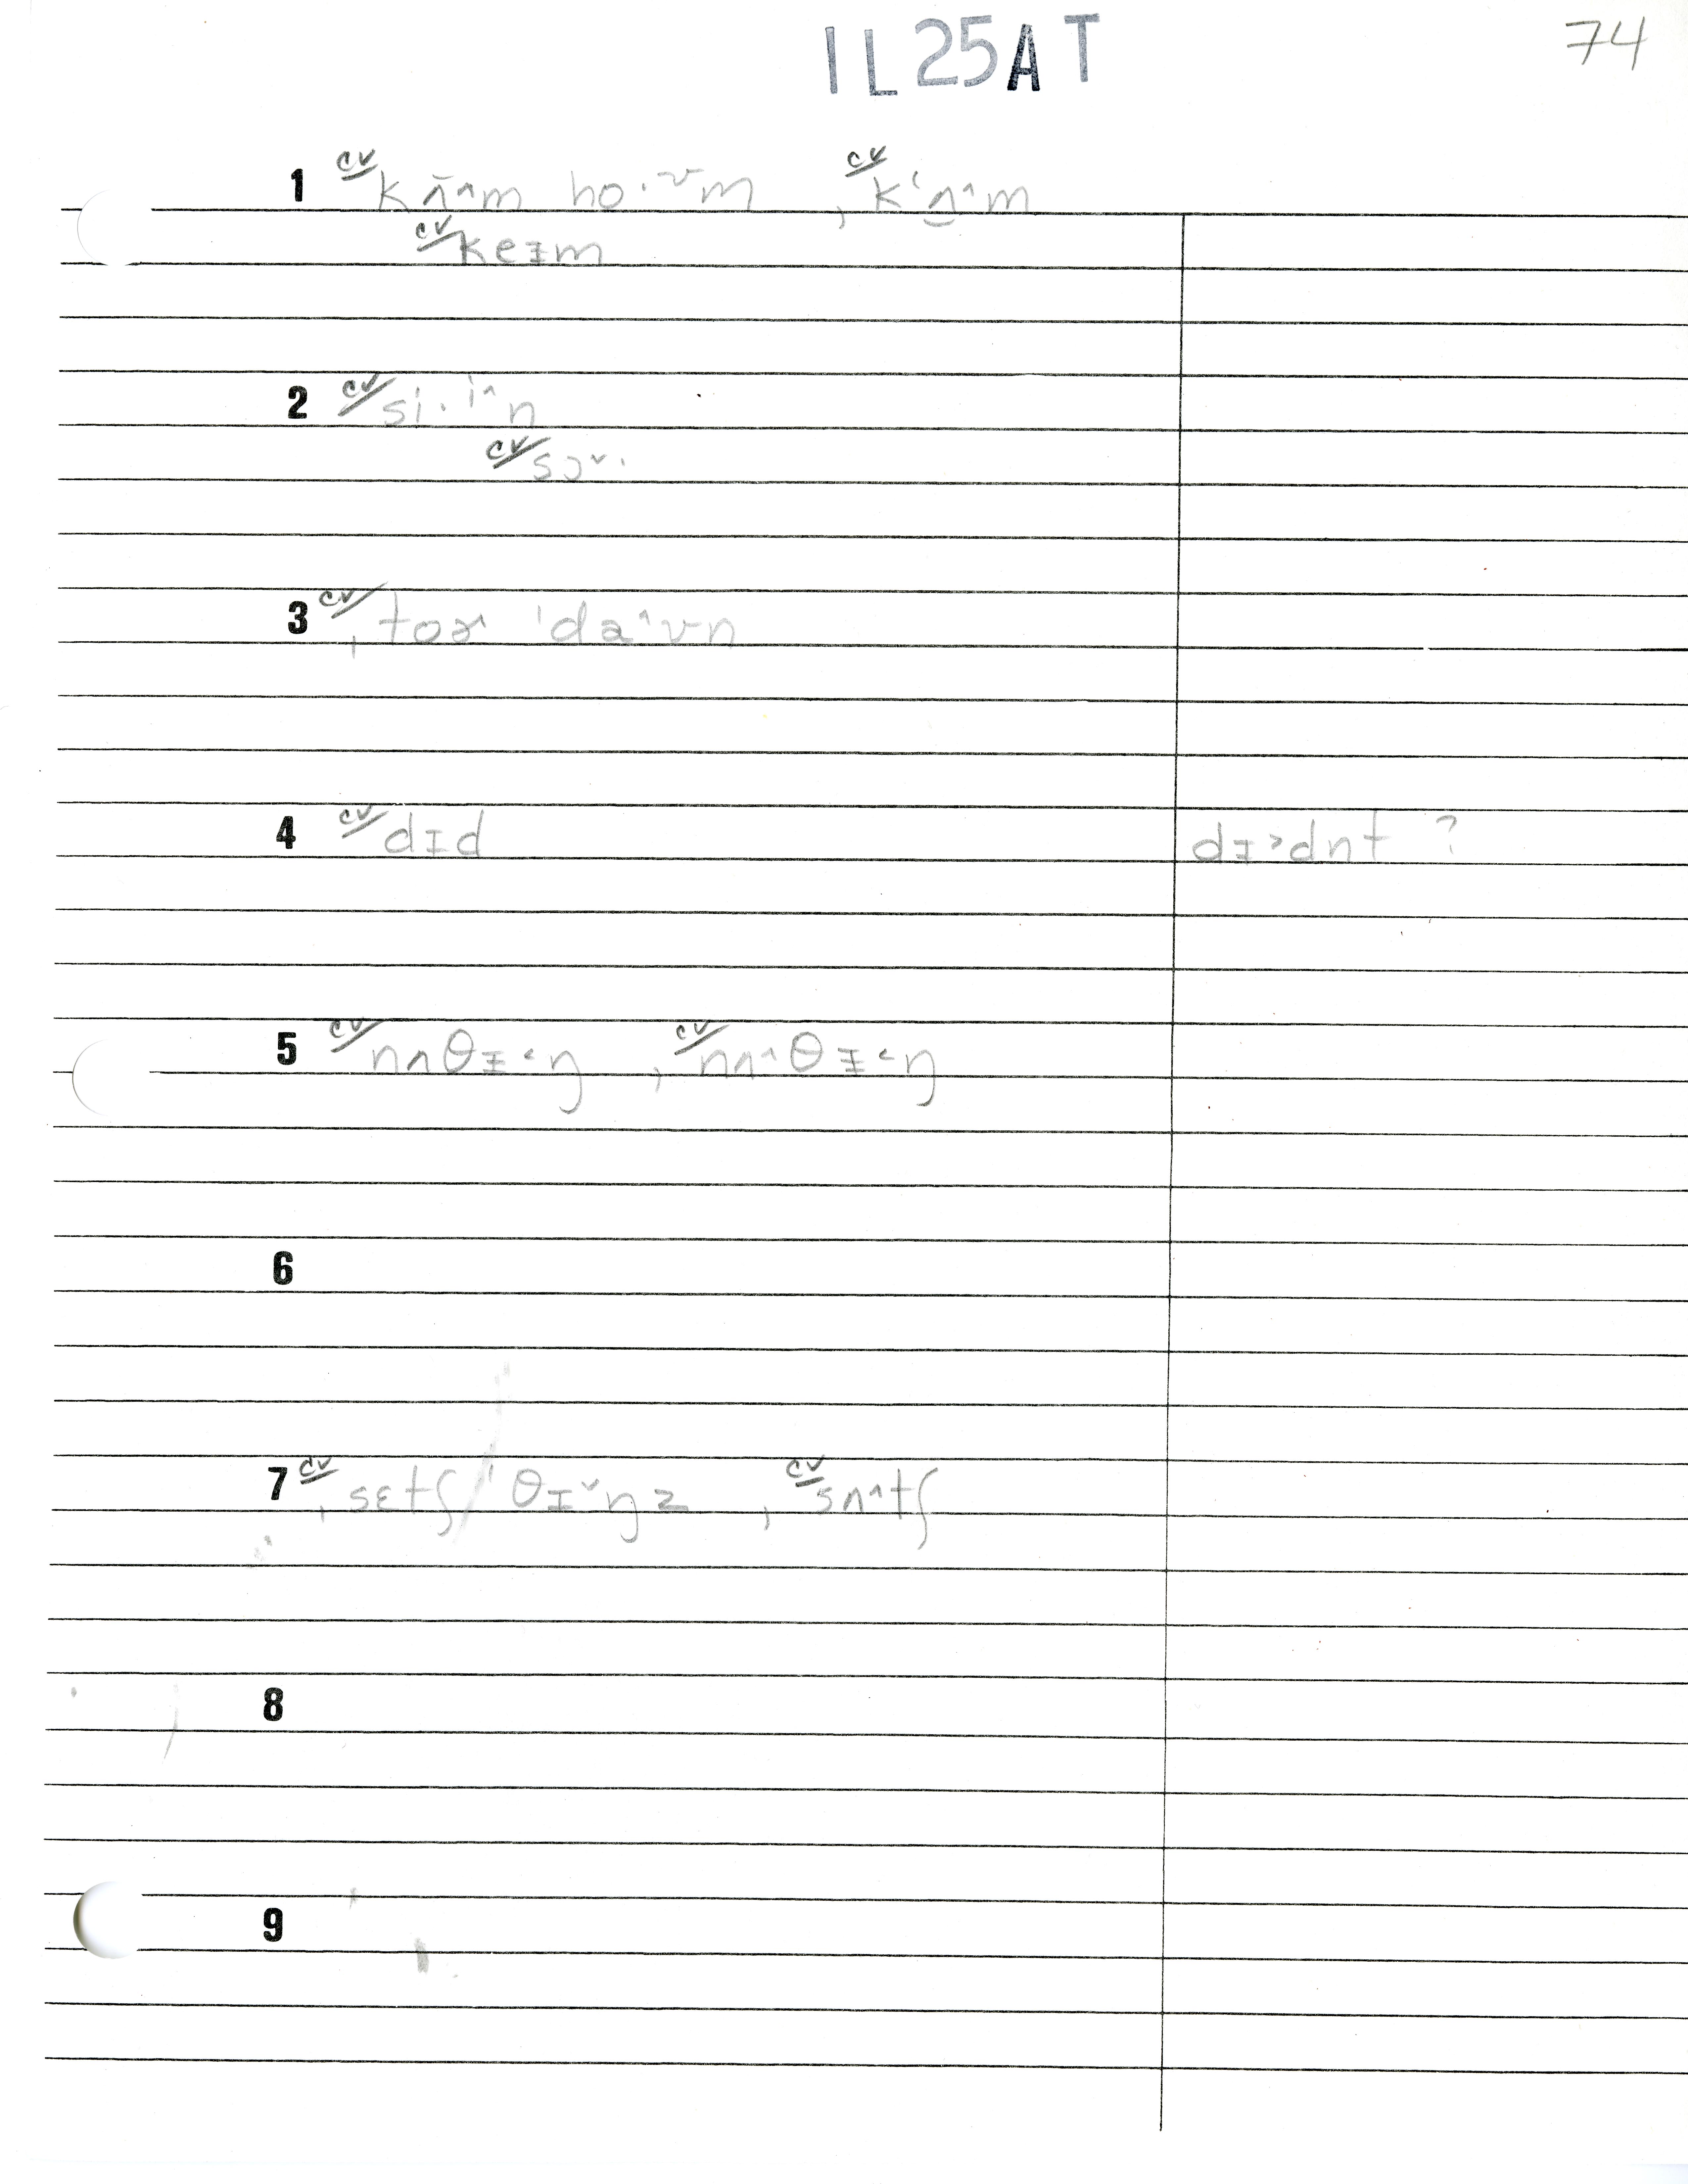 IL25AT
74
1 cv kʌ̄^m ho·ᶹm , cv kʻʌ̲^m
cv keɪm
2 cv si·ⁱ^n
cv sɔ˅·
3 cv ˌtoɚ^ ˈda^ʊn
4 cv dɪd dɪ˃dnt ?
5 cv nʌθɪ˂ŋ , cv nʌ^θɪ˂ŋ
6
7 cv ˌsɛtʃ ˈθɪ˅ŋz , cv sʌ^tʃ
8
9